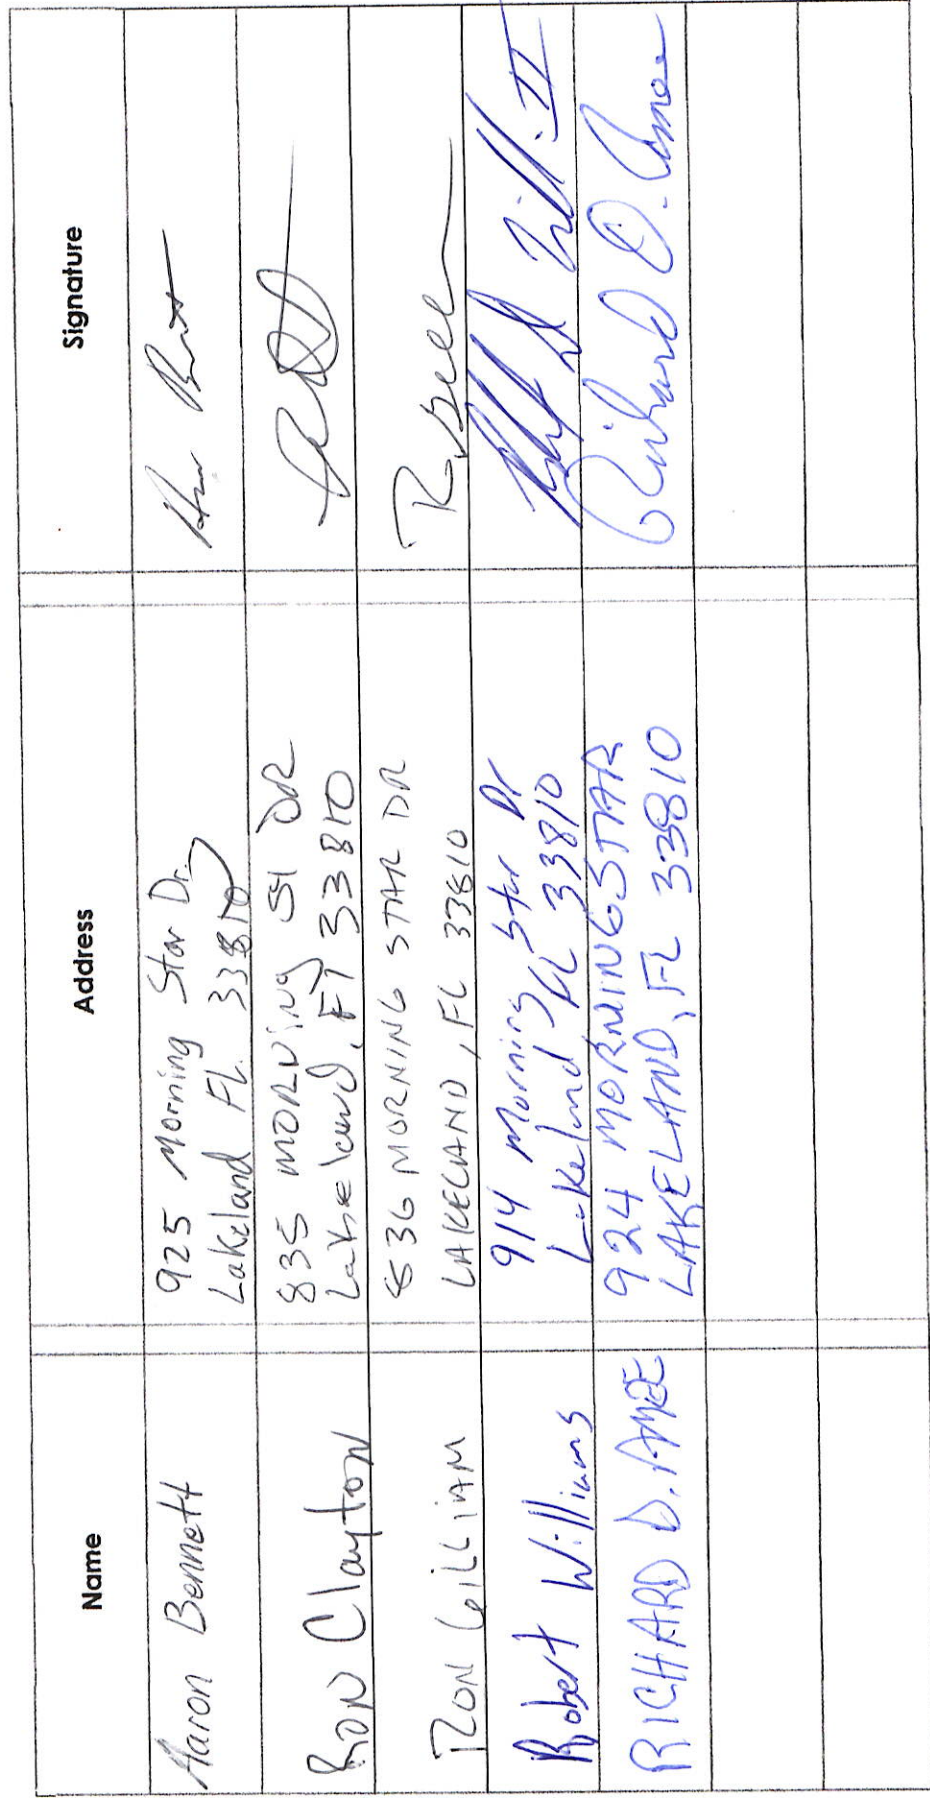 Name Address Signature
Aaron Bennett
925 Morning Star Dr.
Lakeland FL. 33810
Ron Clayton
835 MORNING St DR
Lakeland, Fl 33810
RON GILLIAM
836 MORNING STAR DR
LAKELAND, FL 33810
Robert Williams
914 Morning Star Dr
Lakeland FL 33810
II
RICHARD D. AMEE
924 MORNING STAR
LAKELAND, FL 33810
Richard D. Amee